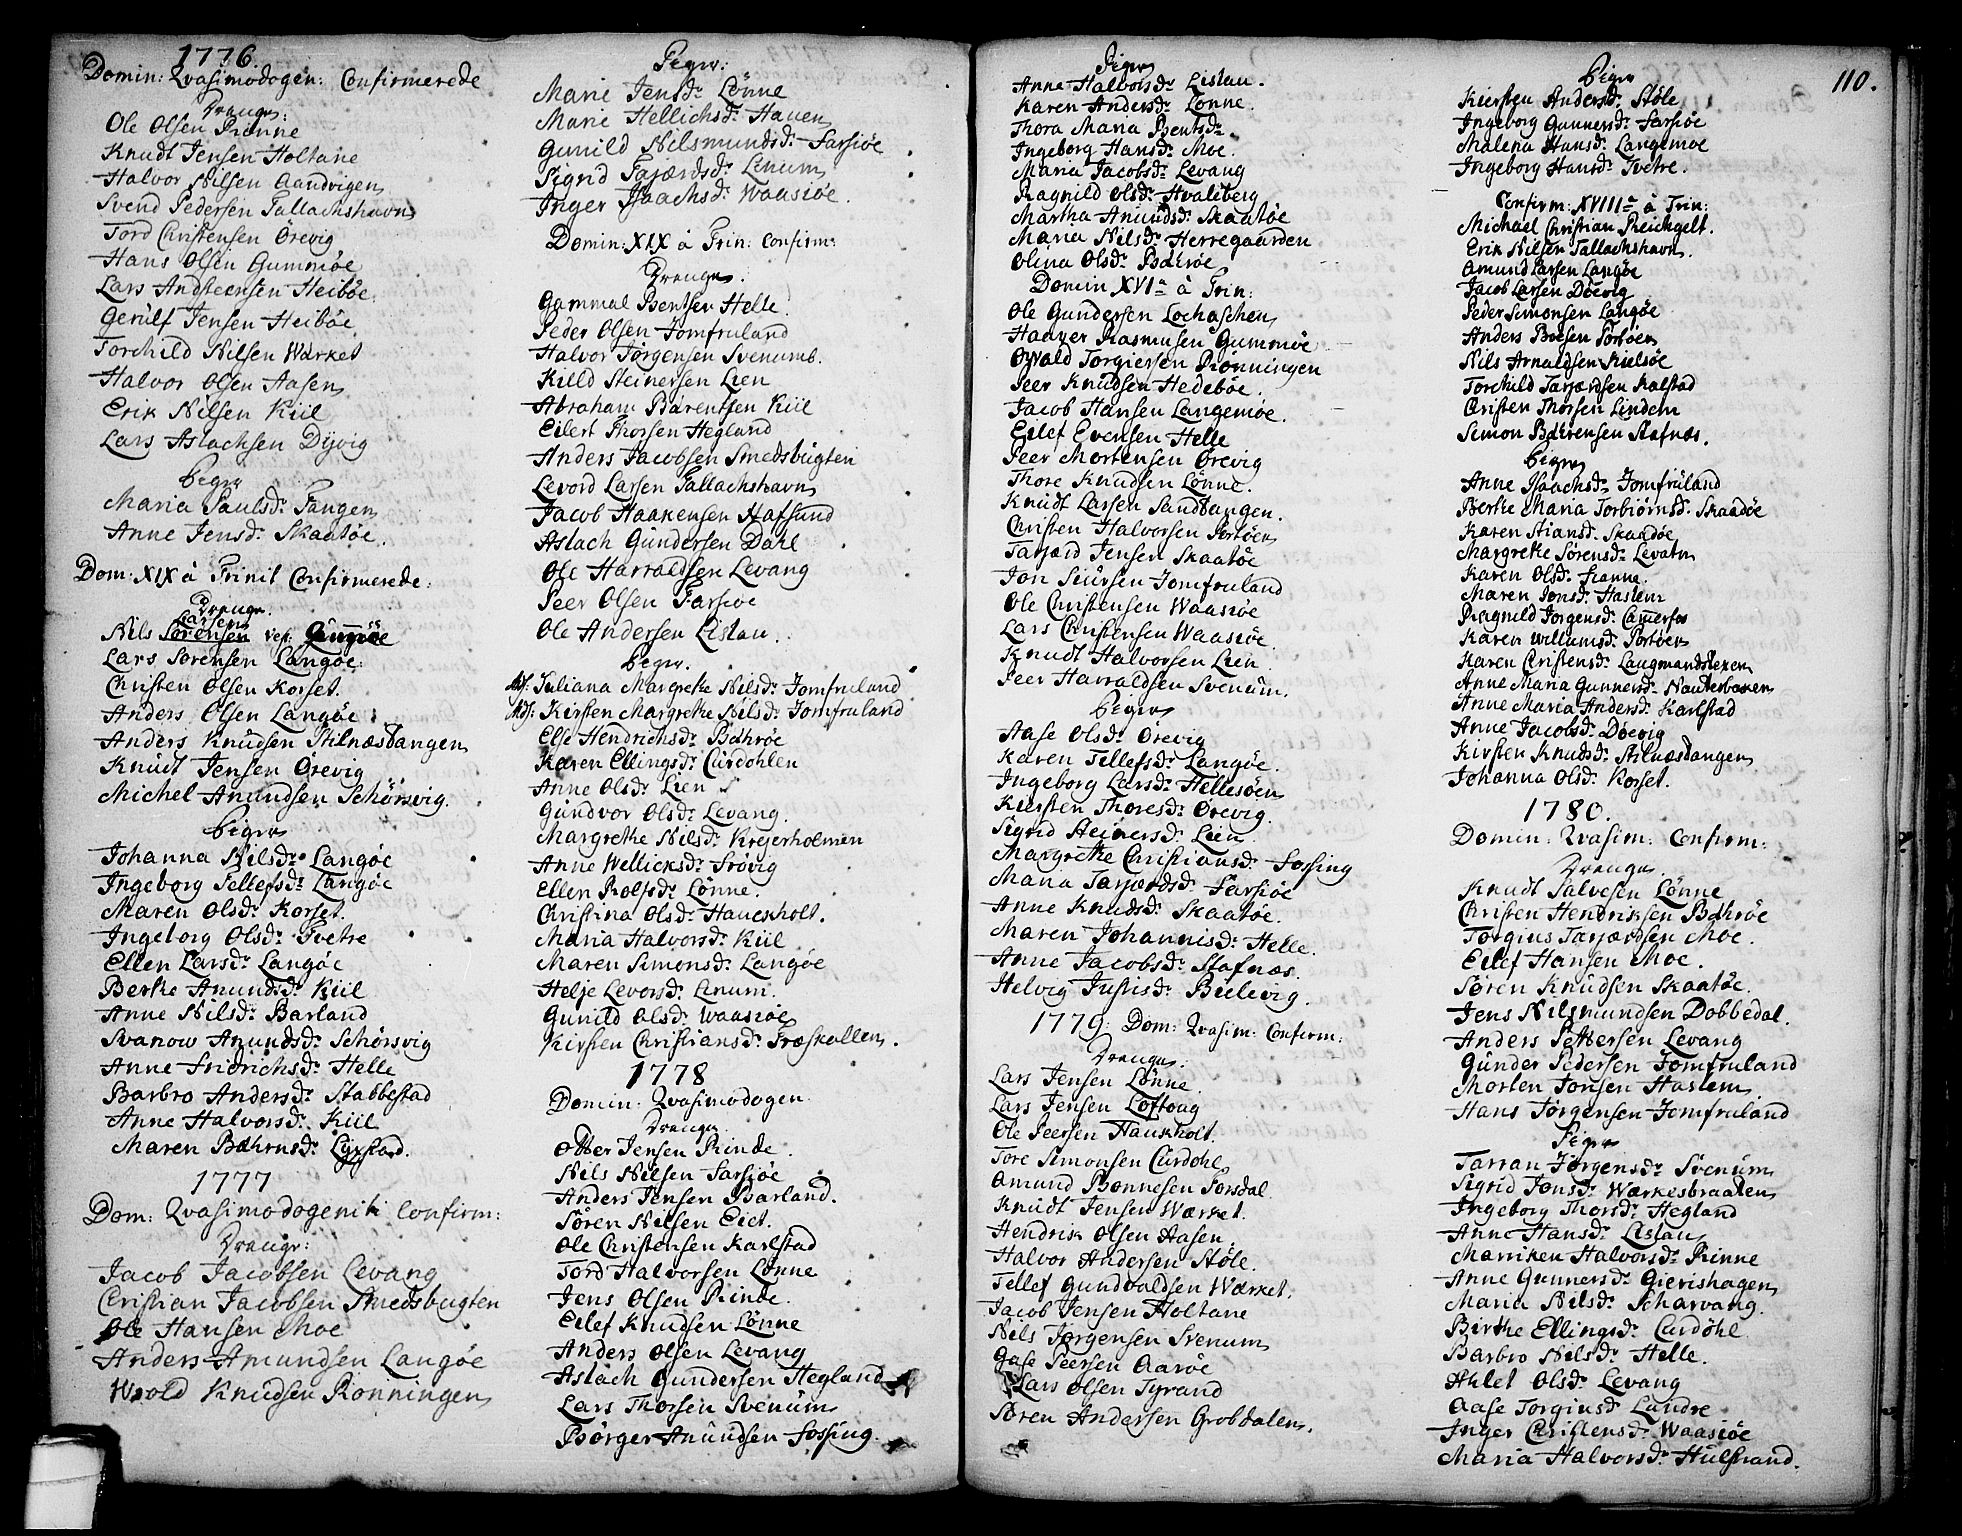 1776.
Domin: Qvasimodogen: Confirmerede
Drenge:
Ole Olsen Rinne
Knudt Jensen Holtane
Halvor Nilsen Aandvigen
Svend Pedersen Tallachshavn
Tord Christensen Örevig
Hans Olsen Gummöe
Lars Andsteensen Heiböe
Gerulf Jensen Heiböe
Torchild Nilsen Wærket
Halvor Olsen Aasen
Erik Nilsen Kiil
Lars Aslachsen Dÿvig
Piger
Maria Paulsdr Tangen
Anne Jensdr Skaatöe.
Dom: XIX à Trinit Confirmerede:
Drenge.
Larsen
Nils Sörensen Langöe
Lars Sörensen Langöe.
Christen Olsen Korset.
Anders Olsen Langöe
Anders Knudsen Stilnæstangen
Knudt Jensen Örevig
Michel Anundsen Schörsvig.
Piger
Johanna Nilsdr Langöe
Ingeborg Tellefsdr Langöe
Maren Olsdr Korset.
Ingeborg Olsdr Tvetre
Ellen Larsdr Langöe
Berthe Anundsdr Kiil
Anne Nilsdr Barland
Svanow Anundsdr Schörsvig
Anne Fridrichsdr Helle
Barbro Andersdr Stabbestad
Anne Halvorsdr Kiil
Maren Bæhrnsdr
1777
Dom: Qvasimodogeniti Confirm:
Drenge:
Jacob Jacobsen Levang
Christian Jacobsen Smedsbugten
Ole Hansen Moe
Anders Amundsen Langöe
Wrold Knudsen Rönningen
Piger:
Marie Jensdr Lönne
Marie Hellichsdr Haven
Gunild Nilsmundsdr Farsiöe
Sigrid Tajærdsdr Linum
Inger Isaachsdr Waasiöe.
Domin: XIX à Trin: Confirm:
Drenge
Gammal Bentsen Helle.
Peder Olsen Jomfruland
Halvor Jörgensen Svenumb.
Killd Steinersen Lien
Abraham Barentsen Kiil
Eilert Thorsen Hegland
Anders Jacobsen Smedsbugten
Levord Larsen Tallachshavn
Jacob Haakensen Hafsund
Aslach Gundersen Dahl
Ole Harraldsen Levang
Peer Olsen Farsiöe
Ole Andersen Lislau.
Piger.
Juliana Margrethe Nilsdr Jomfruland
Kirsten Margrethe Nilsdr Jomfruland
Else Hendrichsdr Bæhröe
Karen Ellingsdr Curdohlen
Anne Olsdr Lien
Gundvor Olsdr Levang.
Margrethe Nilsdr Kregerholmen
Anne Wellicksdr Frövig
Ellen Rolfsdr Lönne.
Christina Olsdr Hauckholt.
Maria Halvorsdr Kiil
Maren Simonsdr Langöe
Helje Levorsdr Linum.
Gunild Olsdr Waasiöe
Kirsten Christiansdr Træskallen.
1778
Domin: Qvasimodogen
Drenge
Otter Jensen Rinde.
Nils Nilsen Farsiöe
Anders Jensen Barland.
Sören Nilsen Eiet.
Ole Christensen Karlstad
Tord Halvorsen Lönne
Jens Olsen Rinde.
Eilef Knudsen Lönne
Anders Olsen Levang
Aslach Gundersen Hegland
Lars Thorsen Svenum
Börger Anundsen Fossing.
Piger
Anne Halvorsdr Lislau.
Karen Andersdr Lönne.
Thora Maria Bentsdr
Ingeborg Hansdr Moe.
Maria Jacobsdr Levang
Ragnild Olsdr Hvaleberg
Martha Anundsdr Skaatöe
Maria Nilsdr Herregaarden
Olina Olsdr Bæhröe
Domin XVIa à Trin:
Ole Gundersen Lochaschen
Haaver Rasmusen Gummöe
Osvald Torgiersen Rönningen
Peer Knudsen Hedeböe.
Jacob Hansen Langemöe.
Eilef Evensen Helle
Peer Mortensen Örevig
Thore Knudsen Lönne.
Knudt Larsen Sandtangen.
Christen Halvorsen Portöen
Tarjærd Jensen Skaatöe
Jon Siursen Jomfruland
Ole Christensen Waasiöe
Lars Christensen Waasiöe.
Knudt Halvorsen Lien
Peer Harraldsen Svenum.
Piger
Aase Olsdr Örevig
Karen Tellefsdr Langöe.
Ingeborg Larsdr Hellesöen
Kiersten Thoresdr Örevig.
Sigrid Steinersdr Lien
Margrethe Christiansdr Fossing
Maria Tarjærdsdr Farsiöe
Anne Knudsdr Skaatöe.
Maren Johannisdr Helle.
Anne Jacobsdr Stafnæs.
Helvig Justisdr Bielevig.
1779: Dom: Qvasim: Confirm:
Drenge:
Lars Jensen Lönne.
Lars Jensen Loftvig
Ole Peersen Hauckholt.
Tore Simonsen Curdohl
Amund Bonnesen Torsdal.
Knudt Jensen Wærket.
Hendrik Olsen Aasen.
Halvor Andersen Stöle.
Tellef Gundvaldsen Wærket.
Jacob Jensen Holtane
Nils Jörgensen Svenum
Aase Peersen Aaröe
Lars Olsen Tyrand
Sören Andersen Grobdalen.
110.
Piger
Kiersten Andersdr Stöle
Ingeborg Gunnersdr Farsiöe
Malena Hansdr Langemöe
Ingeborg Hansdr Tvetre.
Confirm: XVIIIa à Trin:
Michael Christian Reichgelt.
Erik Nilsen Tallachshavn.
Amund Larsen Langöe
Jacob Larsen Döevig
Peder Simonsen Langöe
Anders Boesen Portöen
Nils Arnoldsen Kielsöe
Torchild Tarjærdsen Kalstad
Christen Thorsen Lindem
Simon Bærensen Stafnæs.
Piger
Anne Isaachsdr Jomfruland
Berthe Maria Torbiörnsdr Skaadöe
Karen Stiansdr Skaadöe
Margrethe Sörensdr Levatn
Karen Olsdr Fianne.
Maren Jonsdr Haslem
Ragnild Jörgensdr
Karen Willumsdr Portöen
Karen Christensdr Laugmandslexen
Anne Maria Gunnersdr
Anne Maria Andersdr Karlstad
Anne Jacobsdr Döevig
Kirsten Knudsdr Stilnæstangen
Johanna Olsdr Korset.
1780.
Domin: Qvasim: Confirm:
Drenge.
Knudt Salvesen Lönne
Christen Hendriksen Bæhröe
Torgius Tarjærdsen Moe.
Eilef Hansen Moe.
Sören Knudsen Skaatöe.
Jens Nilsmundsen Dobbedal.
Anders Pettersen Levang
Gunder Pedersen Jomfruland
Morten Jonsen Haslem
Hans Jörgensen Jomfruland
Piger
Tarran Jörgensdr Svenum
Sigrid Jonsdr Wærkesbraaten
Ingeborg Thorsdr Hegland
Anne Hansdr Lislau
Marriken Halvorsdr Rinne
Anne Gunnersdr Gierishagen
Maria Nilsdr Scharvang.
Birthe Ellingsdr Curdöhl
Barbro Nilsdr Helle.
Ahlet Olsdr Levang
Aase Torgiusdr Lundre
Inger Christensdr Waasiöe
Maria Halvorsdr Hulstrand.